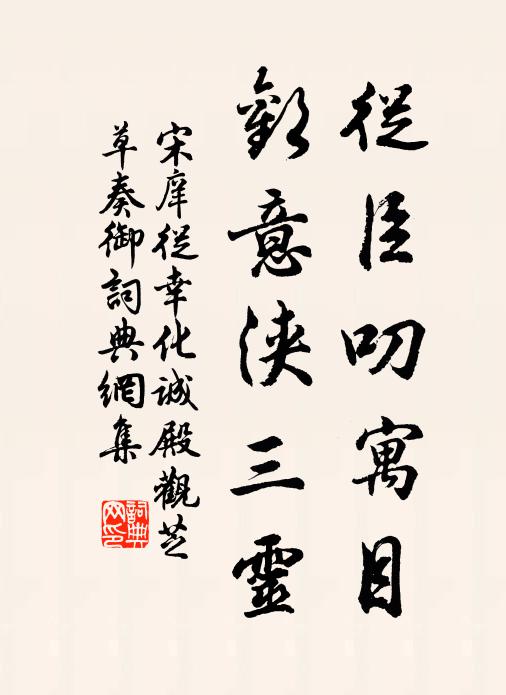 從臣叨寓目
歡意浹三靈
宋庠從幸化誠殿觀芝
草奏御詞典網集
詞典网印